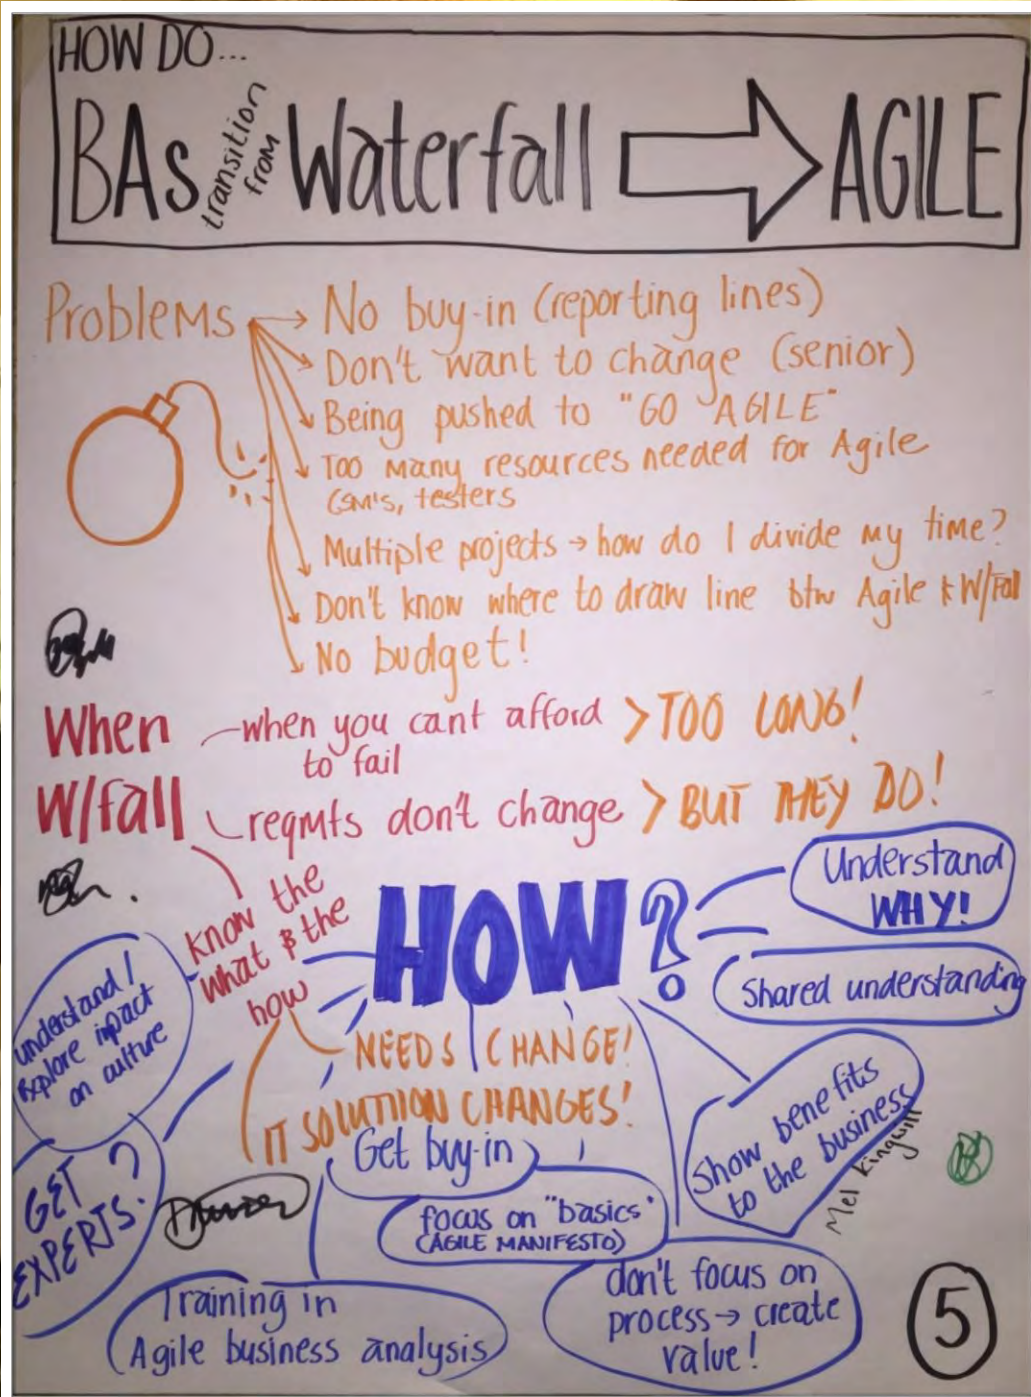 HOW DO...
BAs transition from Waterfall → AGILE
Problems → No buy-in (reporting lines)
Don't want to change (senior)
Being pushed to "GO AGILE"
Too many resources needed for Agile
(SM's, testers
Multiple projects → how do I divide my time?
Don't know where to draw line btw Agile & W/Fall
No budget!
When
W/fall
when you cant afford
to fail
> TOO LONG!
reqmts don't change > BUT THEY DO!
know the
what & the
how
NEEDS CHANGE!
IT SOLUTION CHANGES!
HOW?
Understand
WHY!
Shared understanding
Show benefits
to the business
Mel Kingwill
understand/
explore impact
on culture
GET
EXPERTS?
Get buy-in
focus on "basics"
(AGILE MANIFESTO)
Training in
Agile business analysis
don't focus on
process → create
value!
5